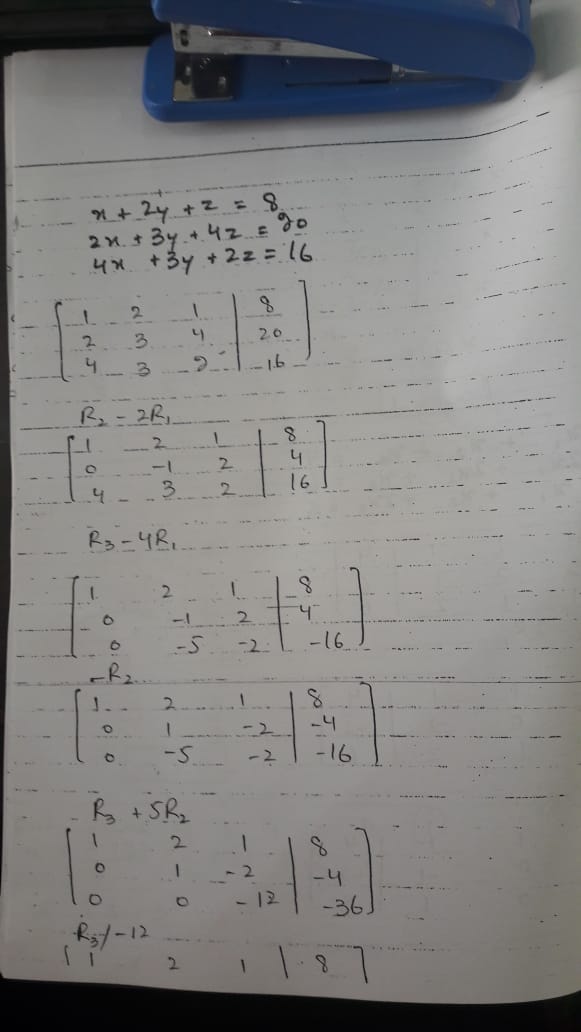 x + 2y + z = 8
2x + 3y + 4z = 20
4x + 3y + 2z = 16
1 2 1 | 8
2 3 4 | 20
4 3 2 | 16
R₂ - 2R₁
1 2 1 | 8
0 -1 2 | 4
4 3 2 | 16
R₃ - 4R₁
1 2 1 | 8
0 -1 2 | 4
0 -5 -2 | -16
-R₂
1 2 1 | 8
0 1 -2 | -4
0 -5 -2 | -16
R₃ + 5R₂
1 2 1 | 8
0 1 -2 | -4
0 0 -12 | -36
R₃/-12
1 2 1 | 8